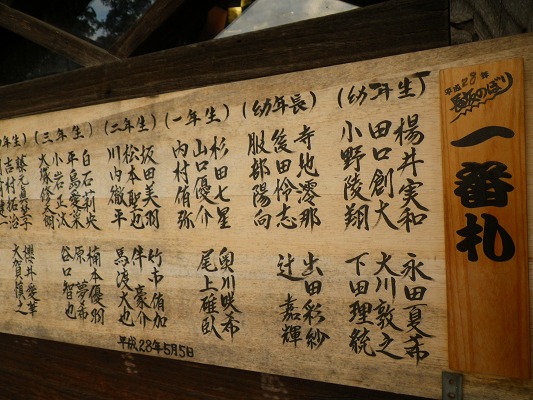 平成28年
長坂のぼり
一番札
(幼年生)
楊井実和
田口創大
小野陵翔
永田夏希
大川敦之
下田理統
(幼年長)
寺地澪那
後田怜志
服部陽向
出田彩紗
辻 嘉輝
(一年生)
杉田七星
山口優介
内村侑弥
奥川咲希
尾上雄臥
(二年生)
坂田美羽
松本聖也
川内徹平
竹市侑加
伴 豪介
馬渡大也
(三年生)
白石莉央
平島愛菜
小岩正汰
大塚修太朗
楠本優羽
原 夢希
谷口智也
年生)
吉村拓治
櫻井愛華
大賀慎之
平成28年5月5日